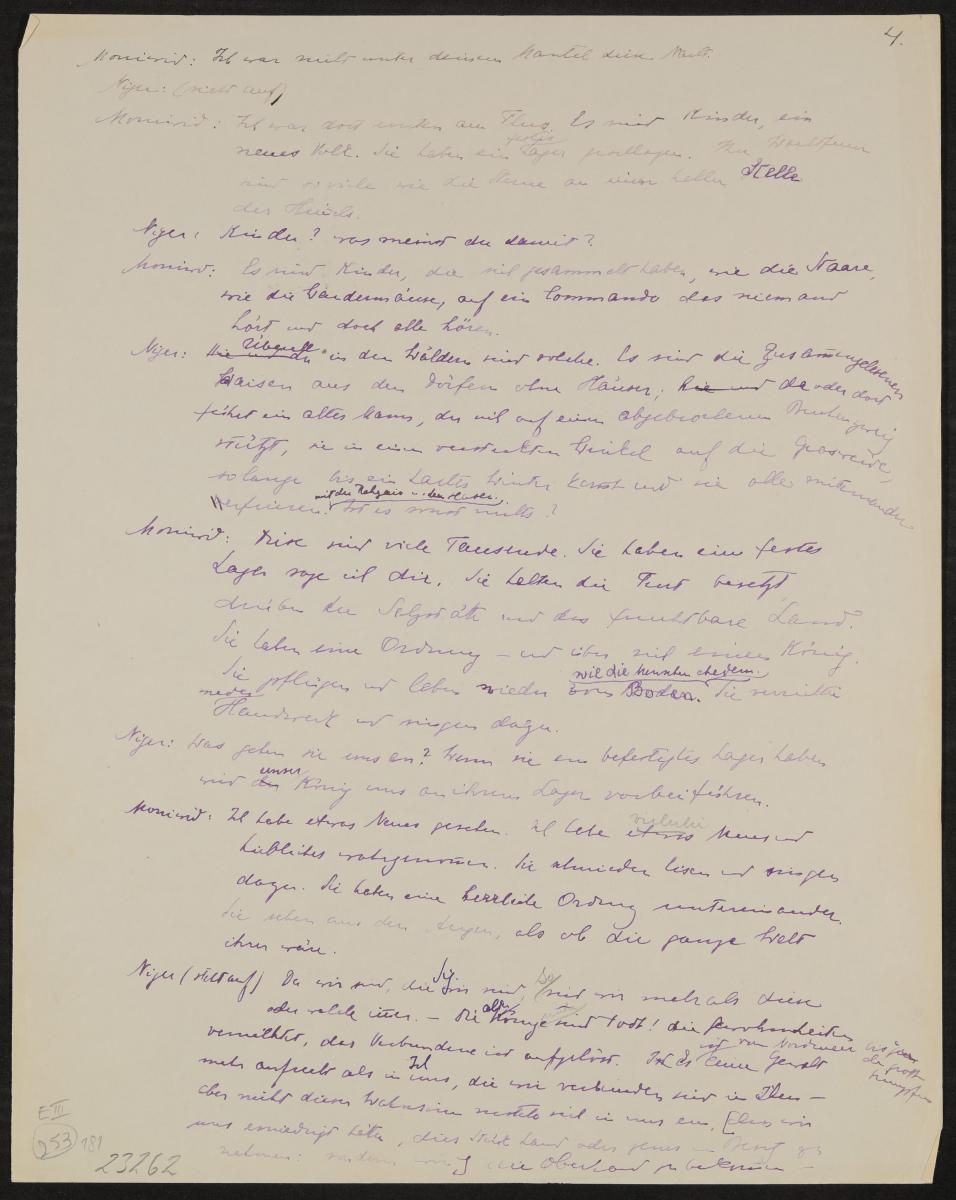 4.
Moniwid: Ich war nicht unter deinem Mantel diese Nacht.
Niger: (sieht auf)
Moniwid: Ich war dort unten am Fluss. Es sind Kinder, ein
festes
neues Volk. Sie haben ein Lager geschlagen. Ihre Wachtfeuer
sind so viele wie die Sterne an einer hellen Stelle
des Himmels.
Niger: Kinder? was meinst du damit?
Moniwid: Es sind Kinder, die sich gesammelt haben, wie die Staare,
wie die Wandermäuse, auf ein Commando das niemand
hört und doch alle hören.
Niger: Hie und da Überall in den Wäldern sind solche. Es sind die Zusammengelesenen
Waisen aus den Dörfern ohne Häuser; hie und da oder dort
führt ein alter Mann, der sich auf einen abgebrochenen
stützt, sie in einen versteckten Winkel auf die Grasweide,
solange bis ein harter Winter kommt und sie alle miteinander
mit den Rehgeis u. den Hasen.
erfrieren. Ist es sonst nichts?
Moniwid: Diese sind viele Tausende. Sie haben ein festes
Lager sage ich dir. Sie halten die Furt besetzt
drüben die Salzstätte und das fruchtbare Land.
Sie haben eine Ordnung – und über sich einen König.
wie die Menschen ehedem.
Sie pflügen und leben wieder vom Boden. Sie verrichten
Handwerk und singen dazu.
Niger: Was gehen sie uns an? Wenn sie ein befestigtes Lager haben
unser
wird der König uns an ihrem Lager vorbeiführen.
Moniwid: Ich habe etwas Neues gesehen. Ich habe etwas Neues und
Liebliches wahrgenommen. Sie schmieden Eisen und singen
dazu. Sie haben eine herrliche Ordnung untereinander.
Sie sehen aus den Augen, als ob die ganze Welt
ihrer wäre.
Niger (steht auf) Da wir sind, die wir sind, sind wir mehr als diese
oder solche – Die alten Könige sind todt! die
vernichtet, das Verbundene ist aufgelöst. Ist Es keine Gewalt
mehr aufrecht als in uns, die wir verbunden sind in Ihm –
aber nicht dieser Wahnsinn nistete sich in uns ein,
uns erniedrigt hätten, dies Stück Land oder jenes in Besitz zu
nehmen: sondern die Oberhand zu bekommen –
E III
253
181
23262